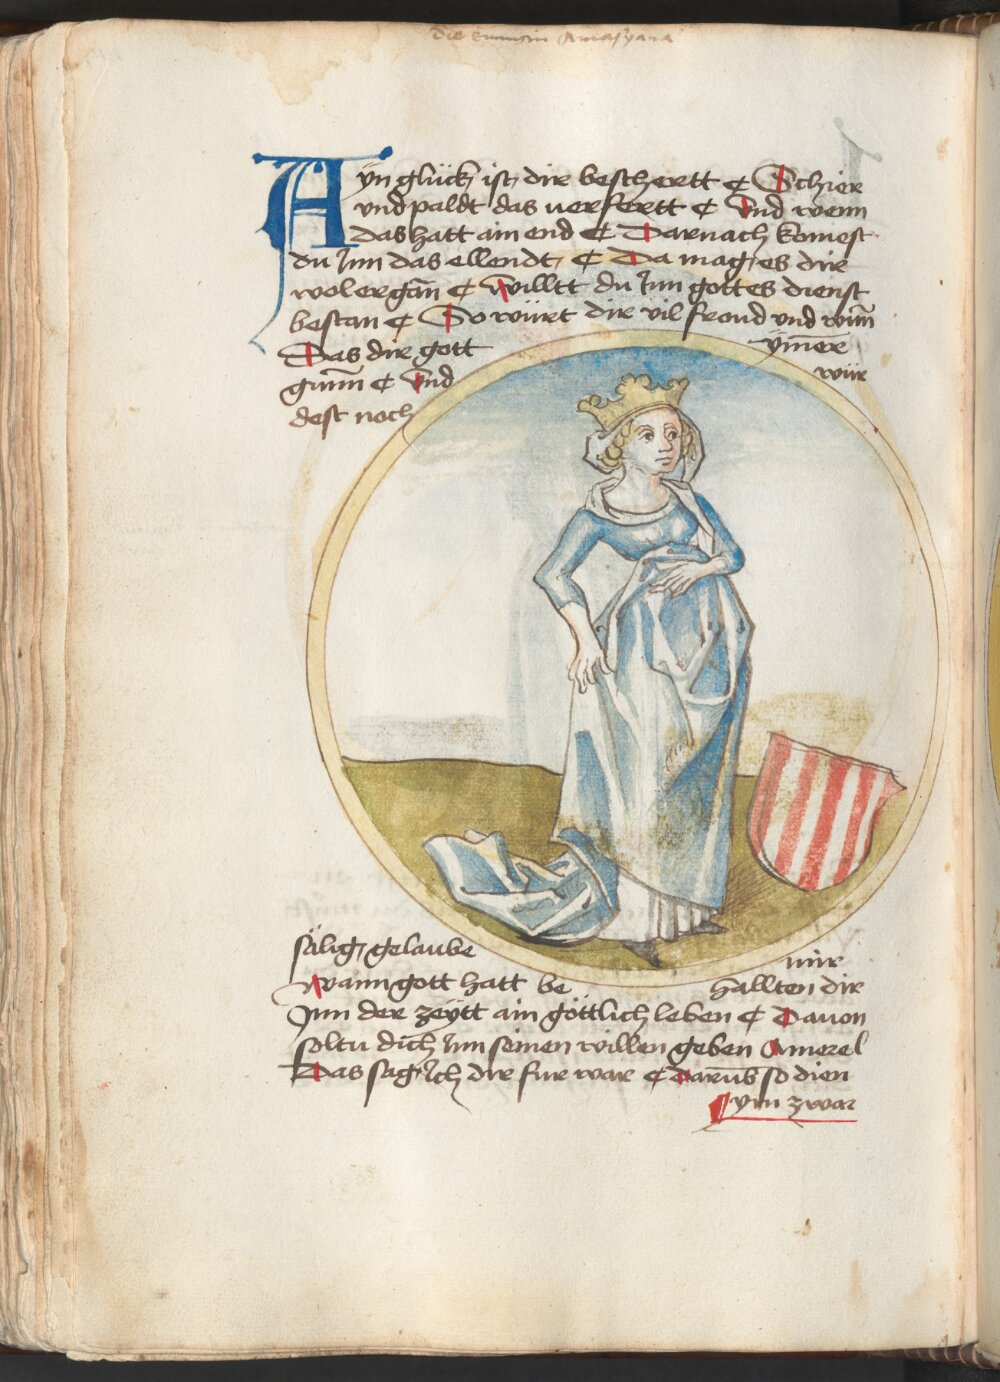 die kunigin Amasyara
Ayn glück ist dir beschertt ¢ Schier
vnd paldt das verfertt ¢ Vnd wenn
das hatt ain end ¢ Darnach komest
du Jnn das ellendt ¢ Da mag es dir
wol ergān ¢ Willtt du Jnn gottes dienst
bestan ¢ So würt dir vil freud vnd wun̄
Das dir gott ym̄er
gunn̄ ¢ Vnd wür
dest noch
sälig gelaube mir
Wann gott hatt be hallten dir
Jnn der zeytt ain göttlich leben ¢ Dauon
soltu dich Jnn seinen willen geben Amerel
Das sag Jch dir fur war ¢ Darūb so dien
ym zwar